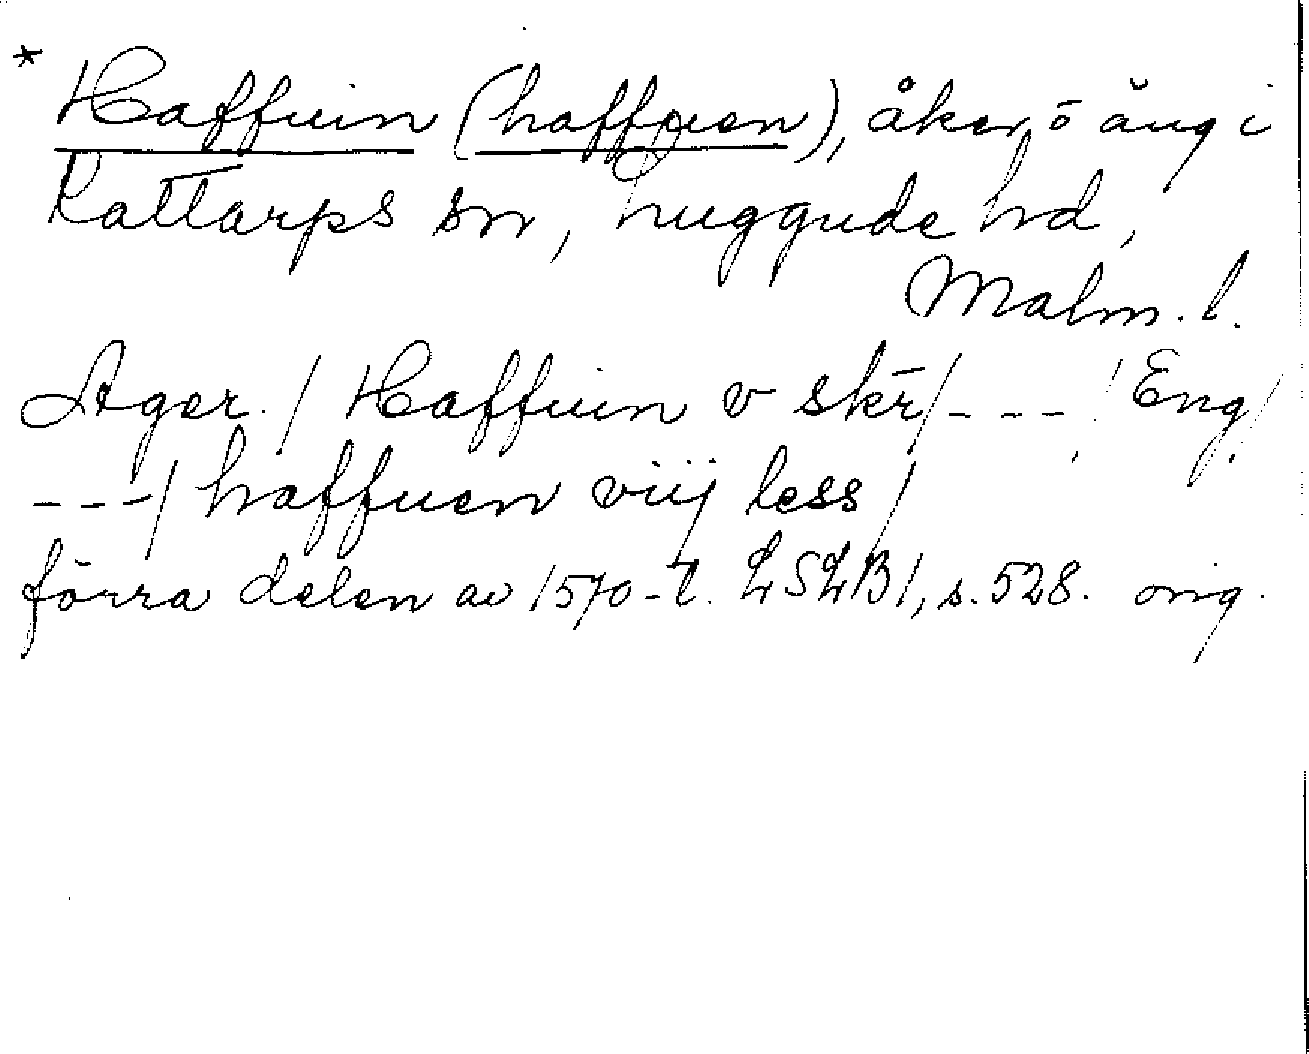 * Haffuin (haffuen), åker o äng i
Kattarps sn, Luggude hd,
Malm. l.
Ager. / Haffuin v skr / - - - / Eng /
- - - / haffuen viij less /
förra delen av 1570-t. LSLB 1, s. 528. orig.